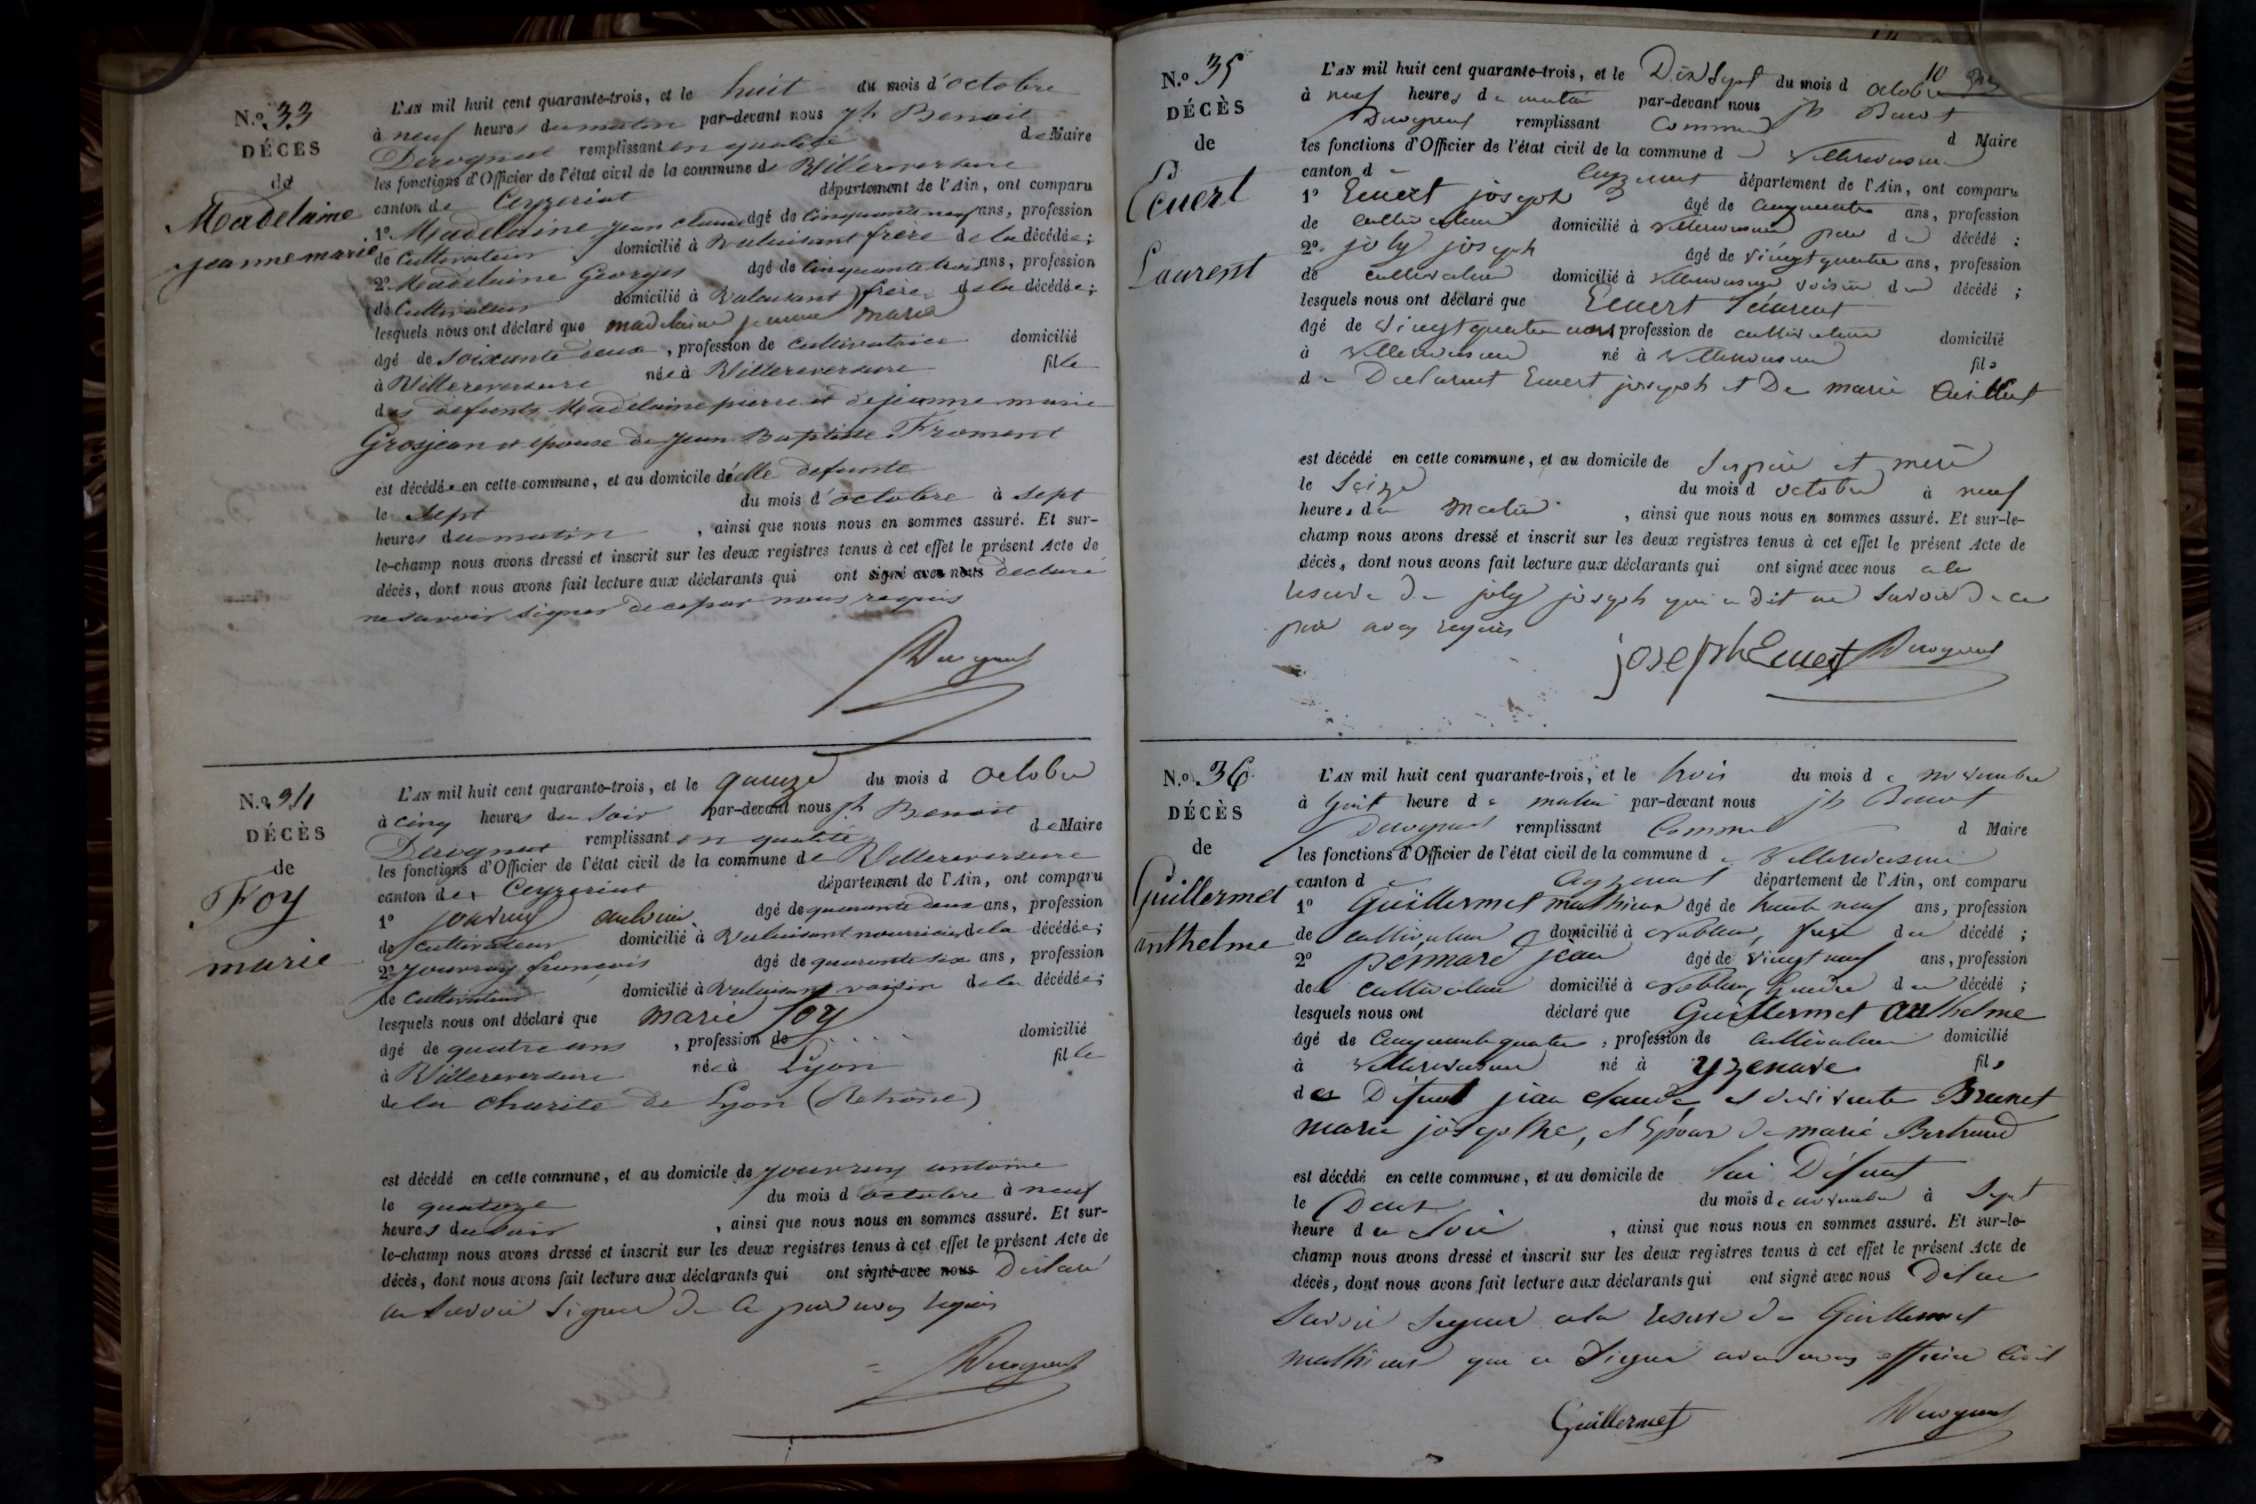 N.o 33
DÉCÈS
de
Madelaine
jeanne marie
L'AN mil huit cent quarante-trois, et le huit du mois d'octobre
à neuf heures du matin par-devant nous jh Benoit
Derognat remplissant en qualité de Maire
les fonctions d'Officier de l'état civil de la commune de Villereversure
canton de Ceyzeriat département de l'Ain, ont comparu
1o Madelaine jean claude âgé de cinquante neuf ans, profession
de cultivateur domicilié à Valuisant frère de la décédée;
2o Madelaine Georges âgé de cinquante trois ans, profession
de Cultivateur domicilié à Valuisant frère de la décédée;
lesquels nous ont déclaré que madelaine jeanne marie
âgé de soixante deux, profession de cultivatrice domicilié
à Villereversure née à Villereversure fille
des défunts Madelaine pierre et de jeanne marie
Grosjean et épouse de Jean Baptiste Froment
est décédée en cette commune, et au domicile d'elle defunte
le sept du mois d'octobre à sept
heures du matin, ainsi que nous nous en sommes assuré. Et sur-
le-champ nous avons dressé et inscrit sur les deux registres tenus à cet effet le présent Acte de
décès, dont nous avons fait lecture aux déclarants qui ont signé avec nous declaré
ne savoir signer de ce par nous requis
Derognat
N.o 34
DÉCÈS
de
Foy
marie
L'AN mil huit cent quarante-trois, et le quinze du mois d octobre
à cinq heures du soir par-devant nous jh Benoit
Derognat remplissant en qualité de Maire
les fonctions d'Officier de l'état civil de la commune de Villereversure
canton de Ceyzeriat département de l'Ain, ont comparu
1o jouvray antoine âgé de quarante deux ans, profession
de cultivateur domicilié à Valuisant nourricier de la décédée;
2o jouvray françois âgé de quarante six ans, profession
de cultivateur domicilié à Valuisant voisin de la décédée;
lesquels nous ont déclaré que marie foy
âgé de quatre ans, profession de . . . . domicilié
à Villereversure née à Lyon fille
de la charité de Lyon (Rohône)
est décédé en cette commune, et au domicile de jouvray antoine
le quatorze du mois d octobre à neuf
heures du soir, ainsi que nous nous en sommes assuré. Et sur-
le-champ nous avons dressé et inscrit sur les deux registres tenus à cet effet le présent Acte de
décès, dont nous avons fait lecture aux déclarants qui ont signé avec nous Déclaré
ne savoir signer de ce par nous requis
Derognat
10
N.o 35
DÉCÈS
de
Euvert
Laurent
L'AN mil huit cent quarante-trois, et le Dix Sept du mois d octobre
à neuf heures de matin par-devant nous jh Benoit
Derognat remplissant Comme d Maire
les fonctions d'Officier de l'état civil de la commune d Villereversure
canton d Ceyzeriat département de l'Ain, ont comparu
1o Euvert joseph âgé de cinquante ans, profession
de cultivateur domicilié à Villereversure père du décédé;
2o joly joseph âgé de vingt quatre ans, profession
de cultivateur domicilié à Villereversure voisin du décédé;
lesquels nous ont déclaré que Euvert Laurent
âgé de vingt quatre ans profession de cultivateur domicilié
à Villereversure né à Villereversure fils
de Declarant Euvert joseph et De marie
est décédé en cette commune, et au domicile de Ses père et mère
le Seize du mois d octobre à neuf
heures du matin, ainsi que nous nous en sommes assuré. Et sur-le-
champ nous avons dressé et inscrit sur les deux registres tenus à cet effet le présent Acte de
décès, dont nous avons fait lecture aux déclarants qui ont signé avec nous a la
reserve de joly joseph qui a Dit ne Savoir de ce
par nous requis
joseph Euvert Derognat
N.o 36
DÉCÈS
de
Guillermet
anthelme
L'AN mil huit cent quarante-trois, et le trois du mois de novembre
à huit heure de matin par-devant nous jh Benoit
Derognat remplissant Comme d Maire
les fonctions d'Officier de l'état civil de la commune de Villereversure
canton d Ceyzeriat département de l'Ain, ont comparu
1o Guillermet mathieux âgé de trente neuf ans, profession
de cultivateur domicilié à Noblens, frère du décédé;
2o pennard jean âgé de vingt neuf ans, profession
de cultivateur domicilié à Noblens, Gendre du décédé;
lesquels nous ont déclaré que Guillermet anthelme
âgé de Cinquante quatre, profession de Cultivateur domicilié
à Villereversure né à yzenave fils
des Défunt jean claude et de vivante Brunet
marie josephe, et Epoux de marie Bertrand
est décédé en cette commune, et au domicile de lui Défunt
le Deux du mois de novembre à Sept
heure du Soir, ainsi que nous nous en sommes assuré. Et sur-le-
champ nous avons dressé et inscrit sur les deux registres tenus à cet effet le présent Acte de
décès, dont nous avons fait lecture aux déclarants qui ont signé avec nous
Savoir Signer a la reserve de Guillermet
mathieux qui a Signé avec nous officier Civil
Guillermet Derognat